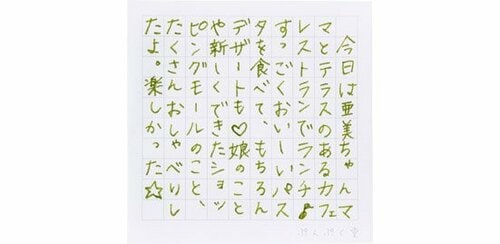 今日は亜美ちゃんマ
マとテラスのあるカフェ
レストランでランチ♪
すっごくおいしーいパス
タを食べて、もちろん
デザートも♡娘のこと
や新しくできたショッ
ピングモールのこと、
たくさんおしゃべりし
たよ。楽しかった☆